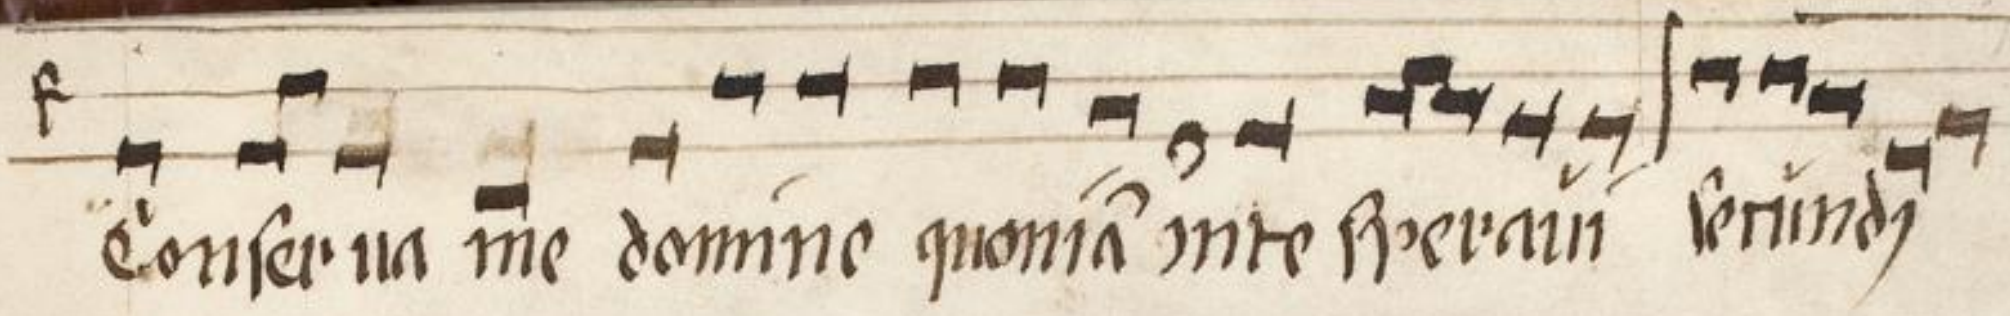 Conserua me domine quoniā inte speraui secundj